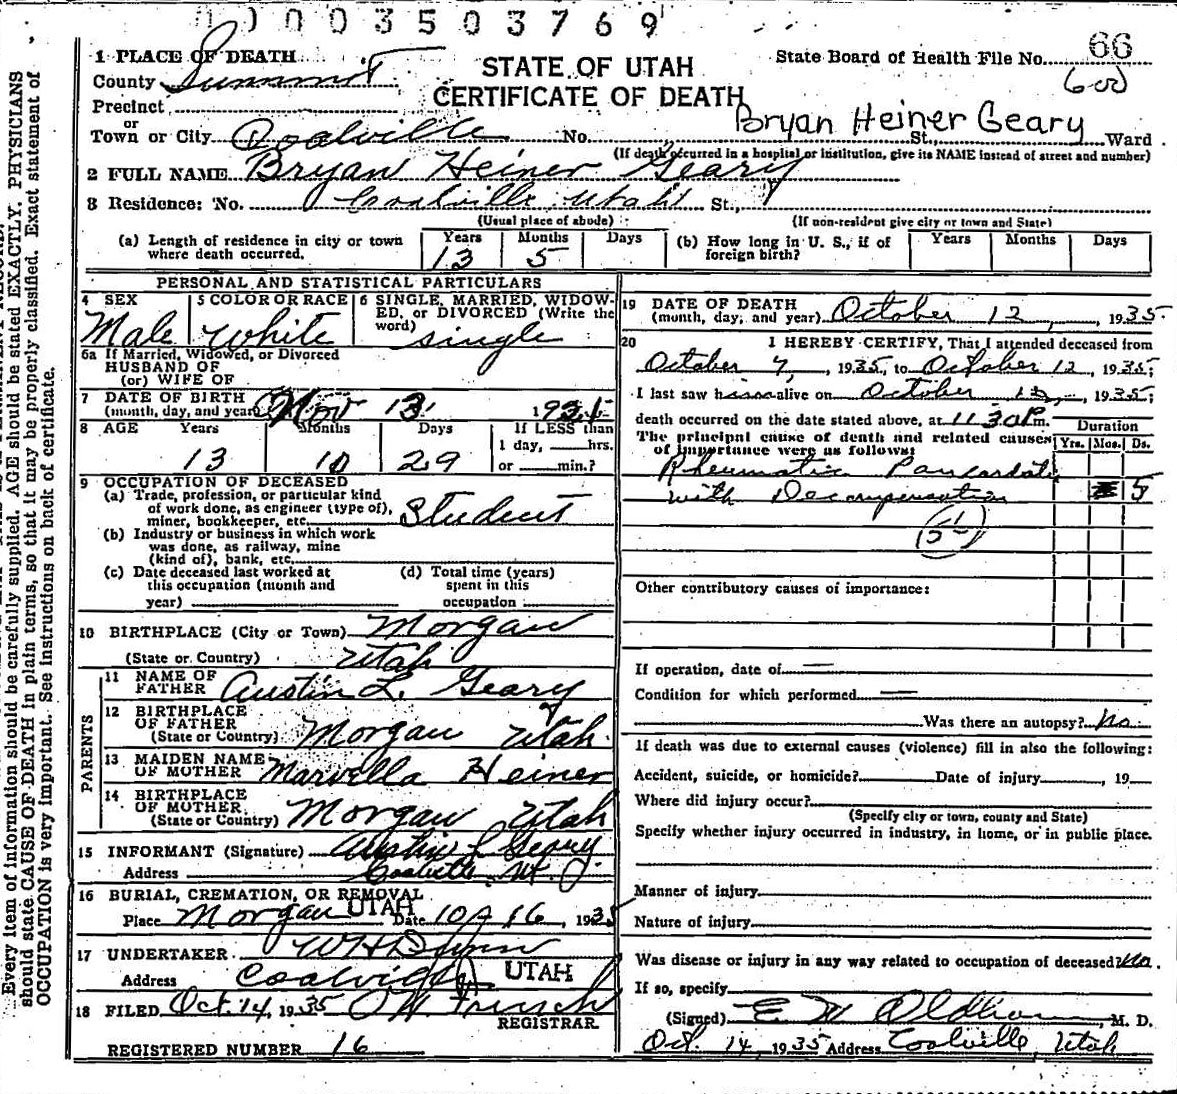 1003503769
1 PLACE OF DEATH
County Summit
STATE OF UTAH
State Board of Health File No. 66
Precinct
CERTIFICATE OF DEATH
600
or
Bryan Heiner Geary
Town or City Coalville No. St., Ward
(If death occurred in a hospital or institution, give its NAME instead of street and number)
2 FULL NAME Bryan Heiner Geary
3 Residence: No. Coalville Utah St.,
(Usual place of abode) (If non-resident give city or town and State)
(a) Length of residence in city or town where death occurred. Years 13 Months 5 Days
(b) How long in U. S., if of foreign birth? Years Months Days
PERSONAL AND STATISTICAL PARTICULARS
4 SEX Male
5 COLOR OR RACE White
6 SINGLE, MARRIED, WIDOWED, or DIVORCED (Write the word) single
6a If Married, Widowed, or Divorced
HUSBAND OF
(or) WIFE OF
7 DATE OF BIRTH
(month, day, and year) Nov 13, 1921
8 AGE Years 13 Months 10 Days 29
If LESS than 1 day, hrs. or min.?
9 OCCUPATION OF DECEASED
(a) Trade, profession, or particular kind
of work done, as engineer (type of),
miner, bookkeeper, etc. Student
(b) Industry or business in which work
was done, as railway, mine
(kind of), bank, etc.
(c) Date deceased last worked at
this occupation (month and
year)
(d) Total time (years)
spent in this
occupation
10 BIRTHPLACE (City or Town) Morgan
(State or Country) Utah
PARENTS
11 NAME OF FATHER Austin L. Geary
12 BIRTHPLACE OF FATHER
(State or Country) Morgan Utah
13 MAIDEN NAME OF MOTHER Marvella Heiner
14 BIRTHPLACE OF MOTHER
(State or Country) Morgan Utah
15 INFORMANT (Signature) Austin L Geary
Address Coalville, Ut.
16 BURIAL, CREMATION, OR REMOVAL
Place Morgan UTAH Date 10/16, 1935
17 UNDERTAKER W H
Address Coalville UTAH
18 FILED Oct. 14, 1935 O W French
REGISTRAR
REGISTERED NUMBER 16
19 DATE OF DEATH
(month, day, and year) October 12, 1935
20 I HEREBY CERTIFY, That I attended deceased from
October 7, 1935, to October 12, 1935;
I last saw him alive on October 12, 1935;
death occurred on the date stated above, at 11.30 P m.
The principal cause of death and related causes
of importance were as follows:
Duration
Yrs. Mos. Ds.
Rheumatic Pancarditis
with Decompensation 5
51
Other contributory causes of importance:
If operation, date of —
Condition for which performed —
Was there an autopsy? No
If death was due to external causes (violence) fill in also the following:
Accident, suicide, or homicide? Date of injury , 19
Where did injury occur?
(Specify city or town, county and State)
Specify whether injury occurred in industry, in home, or in public place.
Manner of injury
Nature of injury
Was disease or injury in any way related to occupation of deceased? No.
If so, specify
(Signed) E W Oldham, M. D.
Oct. 14, 1935 Address Coalville, Utah
Every item of information should be carefully supplied. AGE should be stated EXACTLY. PHYSICIANS
should state CAUSE OF DEATH in plain terms, so that it may be properly classified. Exact statement of
OCCUPATION is very important. See instructions on back of certificate.